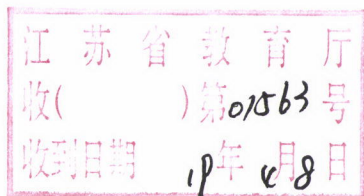 江苏省教育厅
收( )第01563号
收到日期 19年4月8日